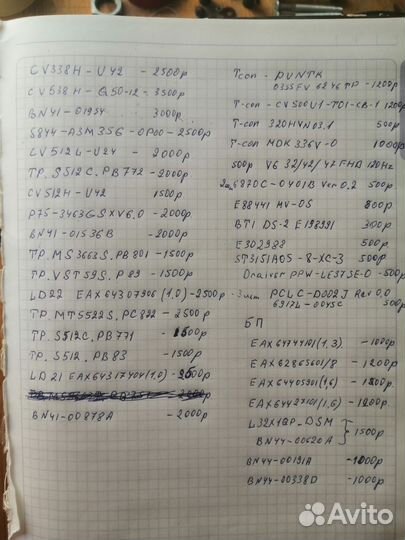 CV338H-U42 - 2500р
CV538H-Q50-12-3500р
BN41-01954 - 3000р
5844-A3M35G-0P00-2500р
CV512L-U24 - 2000р
TP.S512C.PB772-2000р
CV512H-U42 1500р
P75-3463GSXV6.0-2000р
BN41-01536B -2000р
TP.MS3663S.PB801-1500р
TP.VST59S.P89 -1500р
LD22 EAX64307906(1,0)-2500р
TP.MT5522S.PC822-2500р
TP.S512C.PB771 -1500р
TP.S512.PB83 -1500р
LD21 EAX64317404(1,0)-2500р
BN41-00878A -2000р
T-con - RUNTK
0335FV 6246TP-1200р
T-con-CV500U1-T01-CB-1 1200р
T-con 320HVN03.1 500р
T-con HDK 336V-0 1000р
500р V6 32/42/47 FHD 120Hz
2шт 6870C-0401B Ver 0.2 500р
E88441 MV-0S 800р
BT1 DS-2 E198991 300р
E302988 500р
ST3151A05-8-XC-3 500р
Draiver PPW-LE37SE-0 -500р
3шт PCLC-D002J Rev 0,0
6917L-0045C 500р
БП
EAX64744101(1,3) -1000р
EAX62865601/8 -1200р
EAX64405901(1,6) -1200р
EAX64427101(1,6)-1200р
L32X1QP-DSM
BN44-00620A } 1500р
BN44-00191A -1000р
BN44-00338D -1000р
Avito